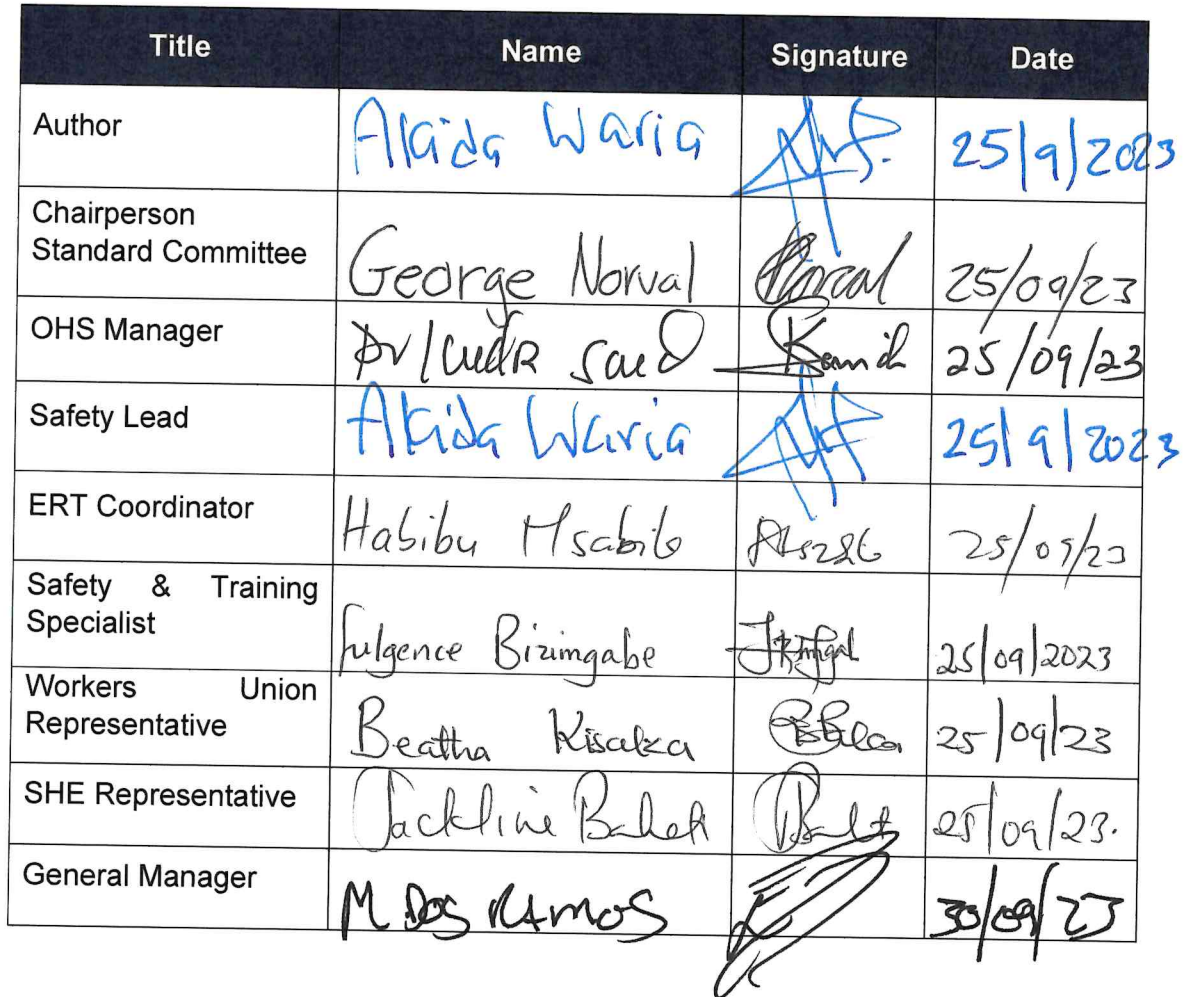 Title Name Signature Date
Author Akida Waria 25/9/2023
Chairperson
Standard Committee George Norval Norval 25/09/23
OHS Manager 25/09/23
Safety Lead Akida Waria 25/9/2023
ERT Coordinator Habibu Msabila 25/09/23
Safety & Training
Specialist Fulgence Bizimgabe 25/09/2023
Workers Union
Representative Beatha Kisalza 25/09/23
SHE Representative Jackline 25/09/23.
General Manager M DOS RAMOS 30/09/23